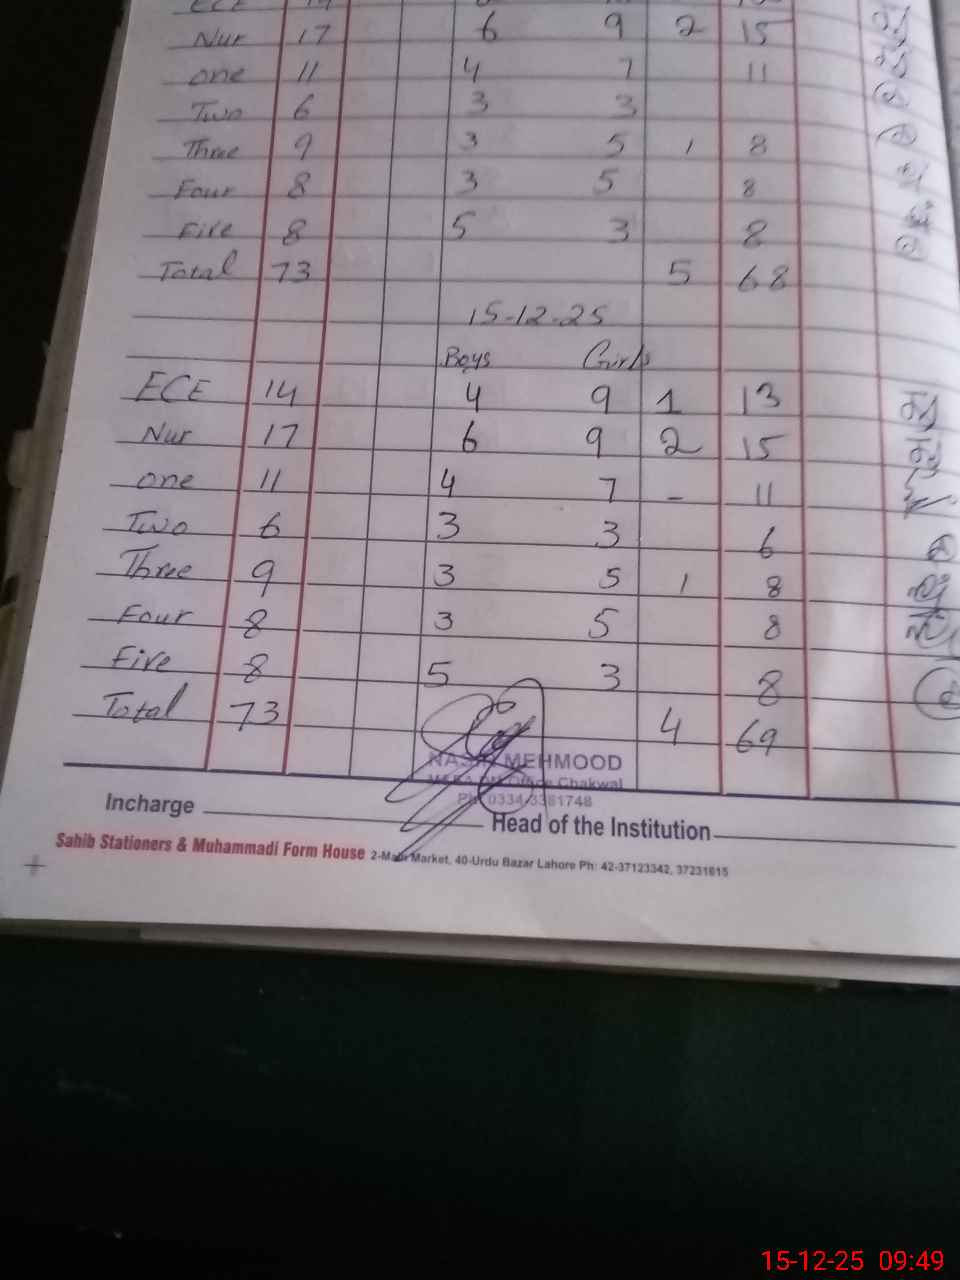 Nur 17 6 9 2 15
one 11 4 7 11
Two 6 3 3
Three 9 3 5 1 8
Four 8 3 5 8
Five 8 5 3 8
Total 73 5 68
15-12-25
Boys Girls
ECE 14 4 9 1 13
Nur 17 6 9 2 15
one 11 4 7 - 11
Two 6 3 3 6
Three 9 3 5 1 8
Four 8 3 5 8
Five 8 5 3 8
Total 73 4 69
MEHMOOD
Office Chakwal
Incharge
Head of the Institution
Sahib Stationers & Muhammadi Form House 2-Main Market, 40-Urdu Bazar Lahore Ph: 42-37123342, 37231615
15-12-25 09:49